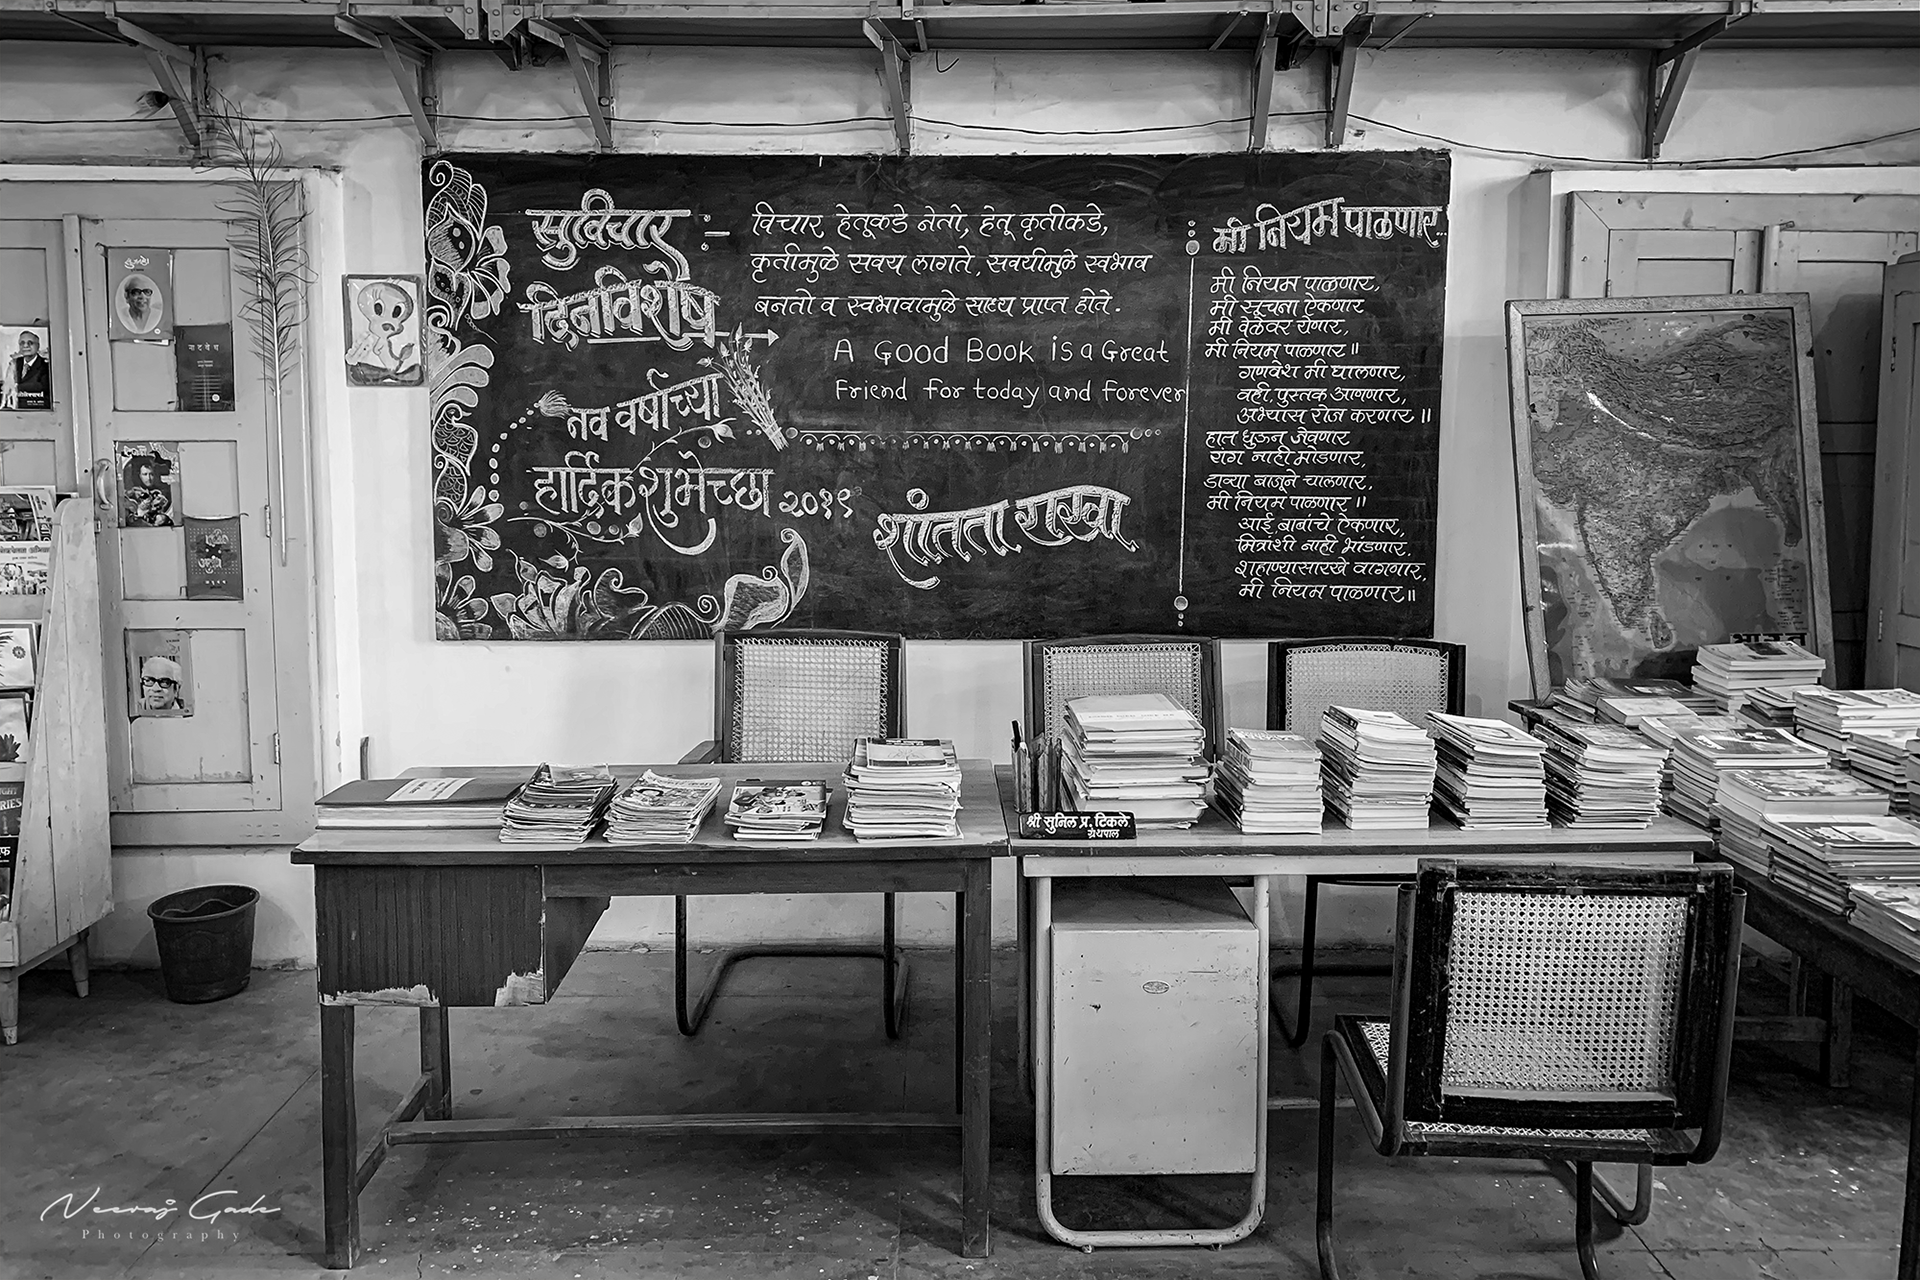 सुविचार :–
दिनविशेष
विचार हेतूकडे नेतो, हेतू कृतीकडे,
कृतीमुळे सवय लागते, सवयीमुळे स्वभाव
बनतो व स्वभावामुळे साध्य प्राप्त होते.
A Good Book is a Great
Friend for today and forever
नव वर्षाच्या
हार्दिक शुभेच्छा २०१९
शांतता राखा
मी नियम पाळणार...
मी नियम पाळणार,
मी सूचना ऐकणार
मी वेळेवर येणार,
मी नियम पाळणार॥
गणवेश मी घालणार,
वही, पुस्तक आणणार,
अभ्यास रोज करणार॥
हात धुऊन जेवणार
रांग नाही मोडणार,
डाव्या बाजूने चालणार,
मी नियम पाळणार॥
आई बाबांचे ऐकणार,
मित्रांशी नाही भांडणार,
शहाण्यासारखे वागणार,
मी नियम पाळणार॥
नादवेध
भारत
श्री सुनिल प्र. टिकले
ग्रंथपाल
Neeraj Gade
Photography